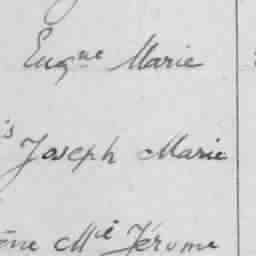 Eugne Marie
is Joseph Marie
ène Mie Jérome